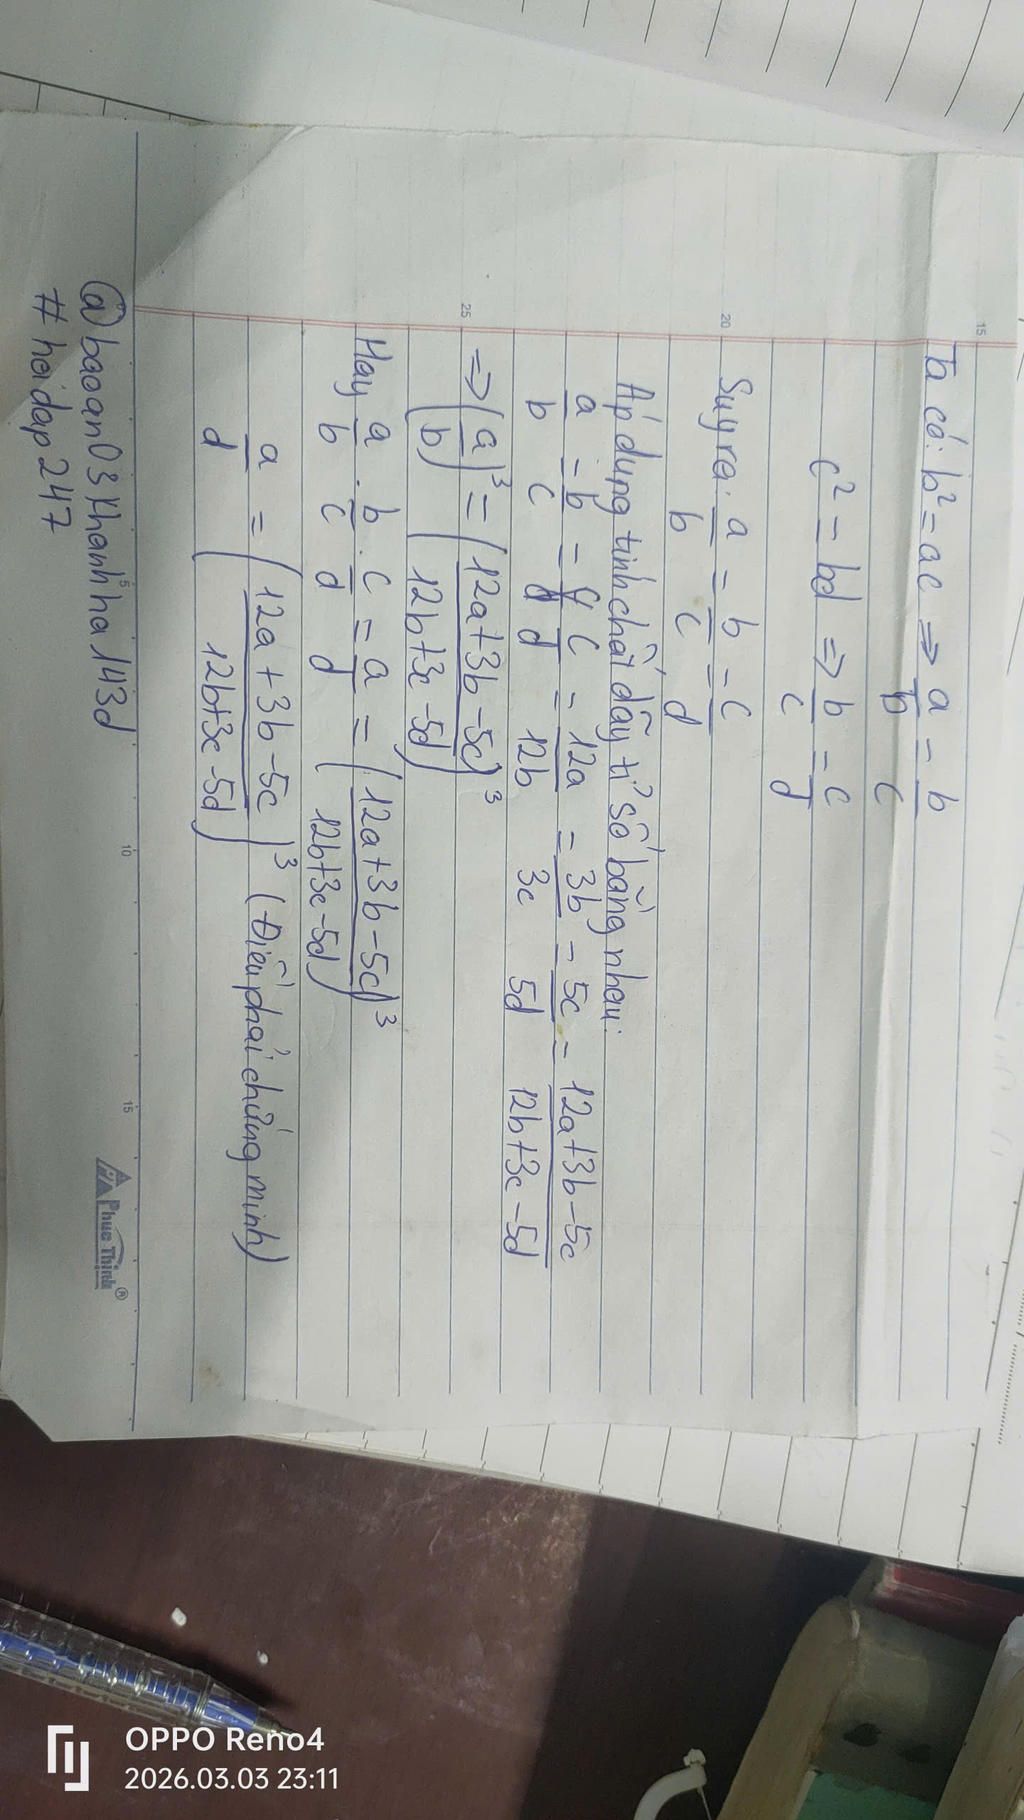 15
Ta có: b² = ac => a/b = b/c
c² = bd => b/c = c/d
20
Suy ra: a/b = b/c = c/d
Áp dụng tính chất dãy tỉ số bằng nhau:
a/b = b/c = c/d = 12a/12b = 3b/3c = 5c/5d = (12a+3b-5c)/(12b+3c-5d)
25
=> (a/b)³ = ((12a+3b-5c)/(12b+3c-5d))³
Hay a/b . b/c . c/d = a/d = ((12a+3b-5c)/(12b+3c-5d))³
a/d = ((12a+3b-5c)/(12b+3c-5d))³ (Điều phải chứng minh)
5 10 15
Phuc Thinh®
@baoan03khanhha143d
#hoidap247
OPPO Reno4
2026.03.03 23:11